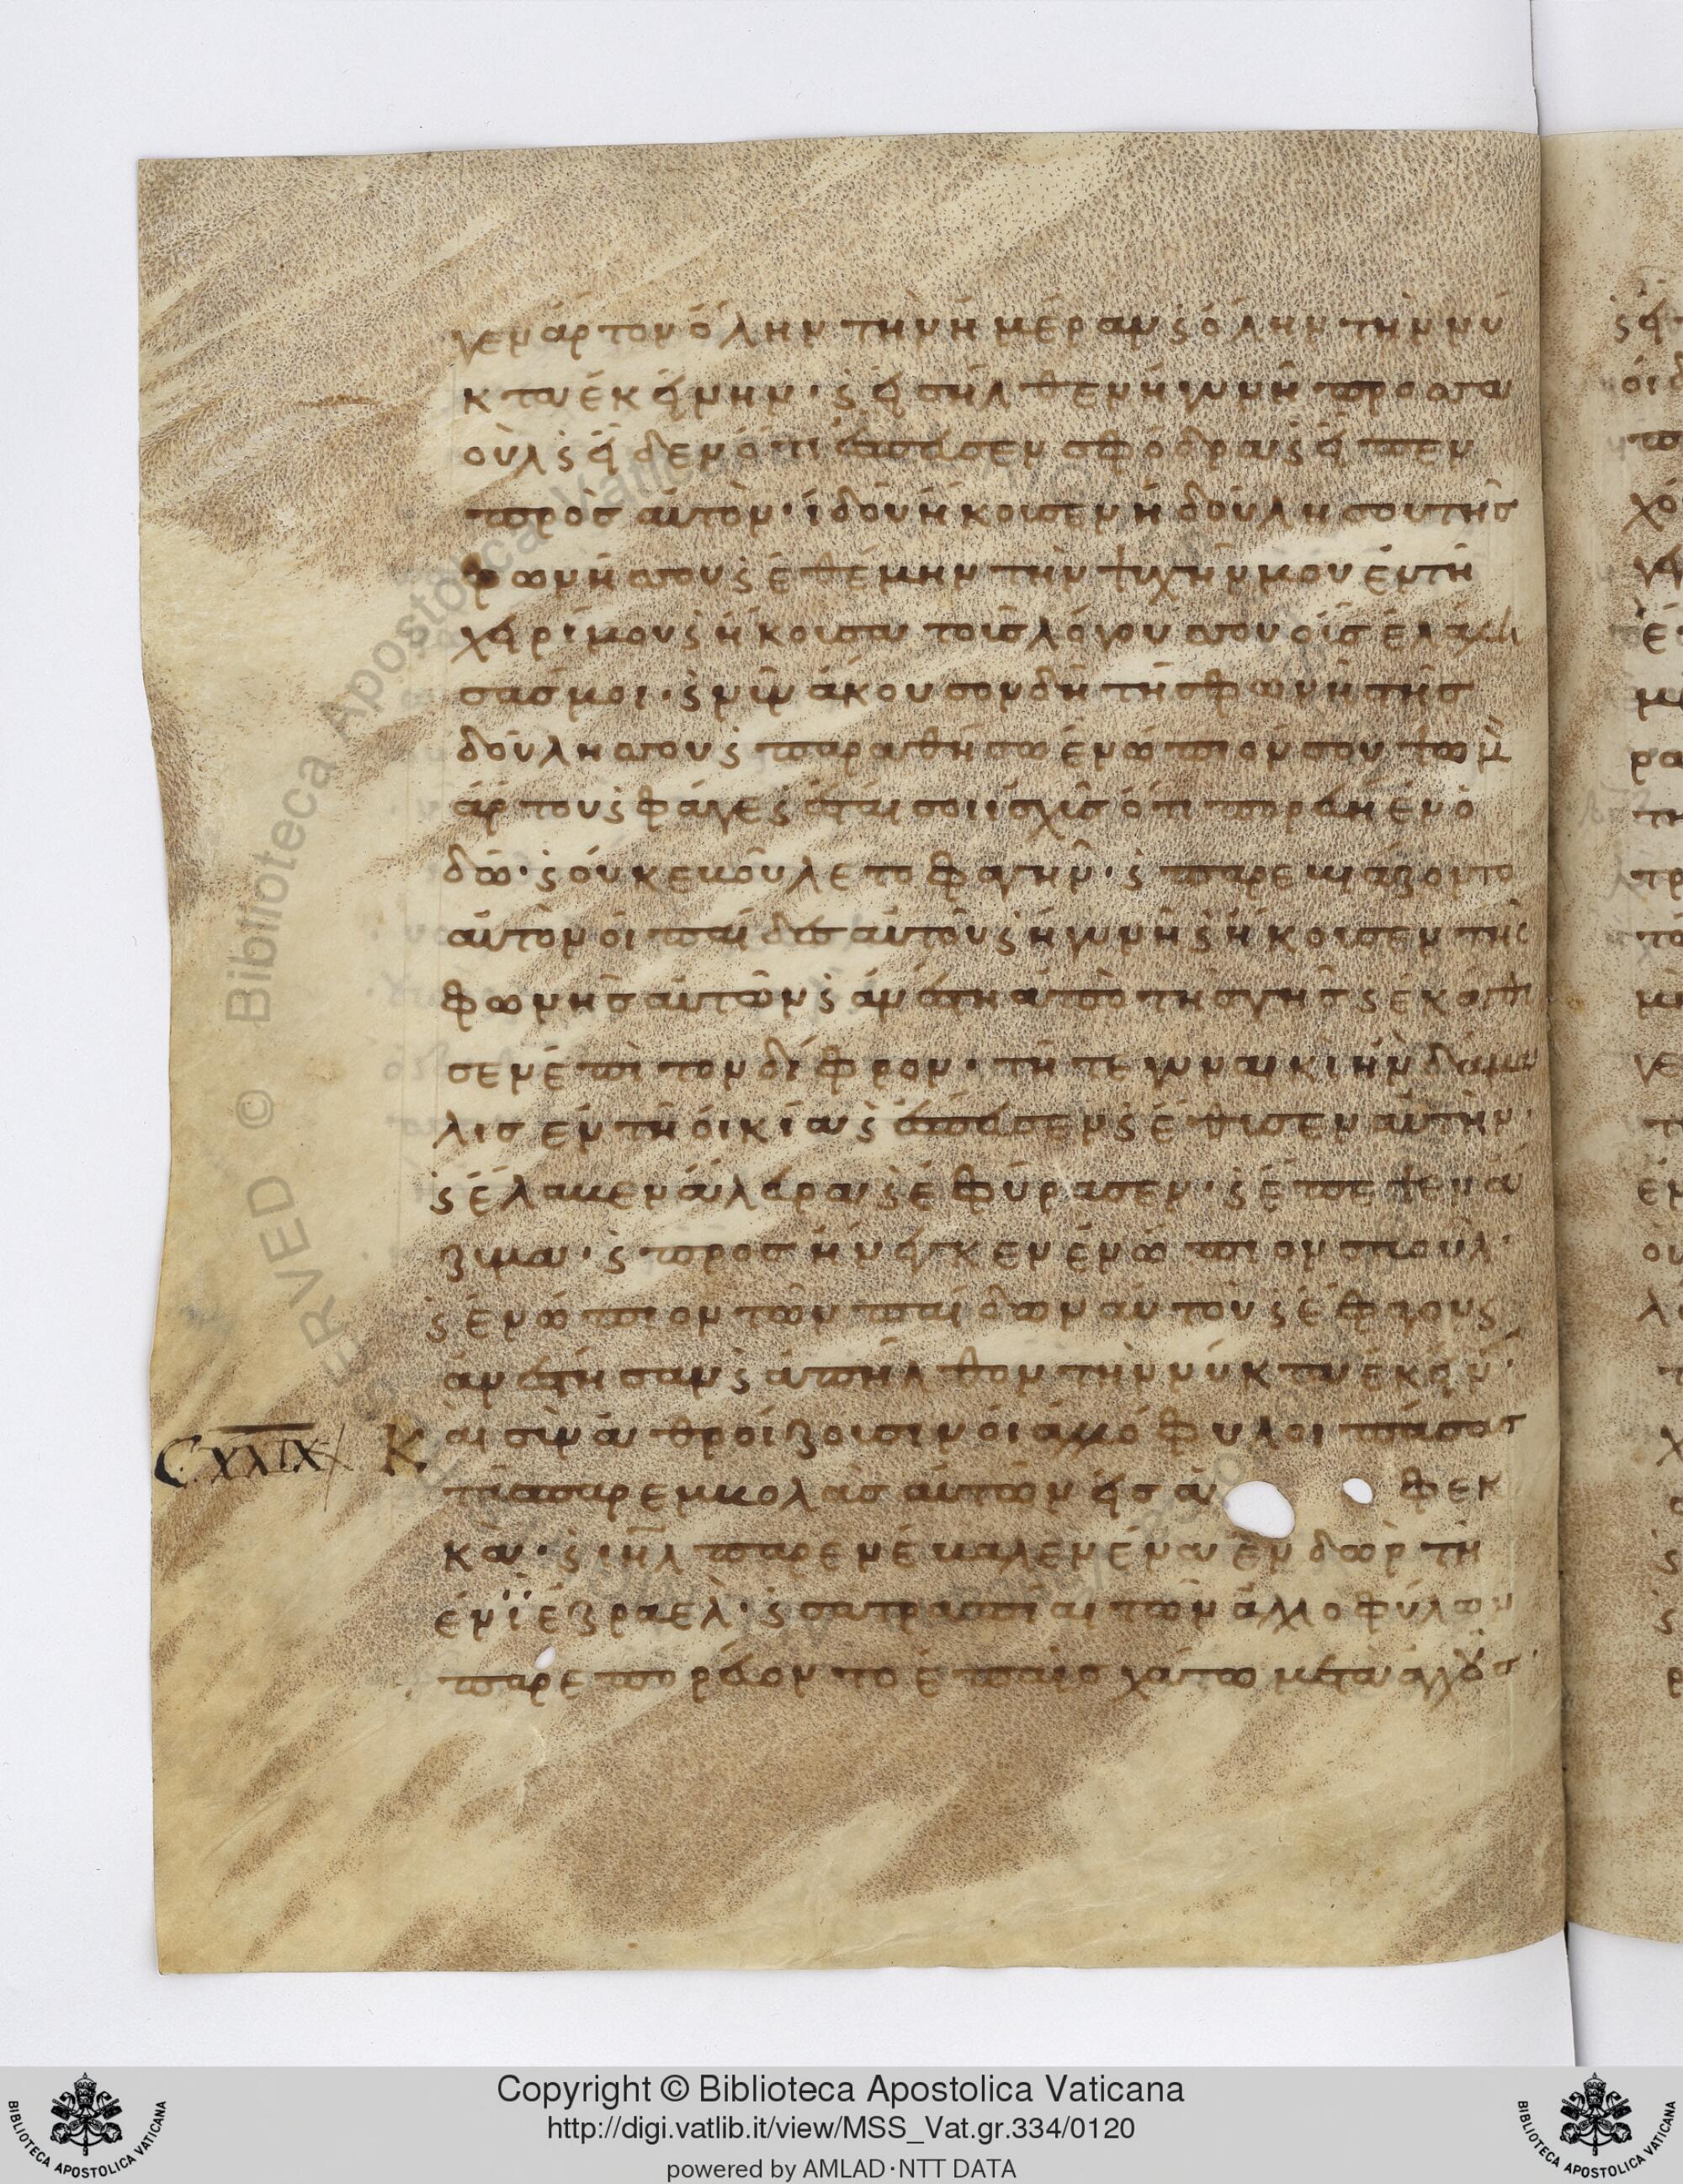 γεν ἄρτον ὅλην τὴν ἡμέραν ϗ ὅλην τὴν νύ
κτα ἐκείνην · ϗ εἰσῆλθεν ἡ γυνὴ προσσα
οὺλ ϗ εἶδεν ὅτι ἔσπευσεν σφόδρα ϗ εἶπεν
πρὸς αὐτὸν · ἰδοὺ ἤκουσεν ἡ δούλη σου τῆς
φωνῆς σου ϗ ἐθέμην τὴν ψυχήν μου ἐν τῆ
χειρί μου ϗ ἤκουσα τοὺς λόγους σου οὓς ἐλάλη
σάς μοι · ϗ νῦν ἄκουσον δὴ τῆς φωνῆς τῆς
δούλης σου ϗ παραθήσω ἐνώπιόν σου ψωμὸν
ἄρτου ϗ φάγε ϗ ἔσται σοι ἰσχὺς ὅτι πορεύη ἐν ὁ
δῶ · ϗ οὐκ ἐβούλετο φαγεῖν · ϗ παρεβιάζοντο
αὐτὸν οἱ παῖδες αὐτοῦ ϗ ἡ γυνὴ ϗ ἤκουσεν τῆς
φωνῆς αὐτῶν ϗ ἀνέστη ἀπὸ τῆς γῆς ϗ ἐκάθι
σεν ἐπὶ τὸν δίφρον · τῆ τε γυναικὶ ἦν δάμα
λις ἐν τῆ οἰκία ϗ ἔσπευσεν ϗ ἔθυσεν αὐτὴν ·
ϗ ἔλαβεν ἄλευρα ϗ ἐφύρασεν · ϗ ἔπεψεν ἄ
ζυμα · ϗ προσήνεγκεν ἐνώπιον σαοὺλ ·
ϗ ἐνώπιον τῶν παίδων αὐτοῦ ϗ ἔφαγον ϗ
ἀνέστησαν ϗ ἀπῆλθον τὴν νύκτα ἐκείν ·
CXXIX Καὶ συναθροίζουσιν οἱ ἀλλόφυλοι πάσας
τὰς παρεμβολὰς αὐτῶν εἰς ἀ φεκ
κὰ · ϗ ιηλ παρενέβαλεν ἐν ἀενδὼρ τῆ
ἐν ϊεζραελ · ϗ σατράπαι τῶν ἀλλοφύλων
παρεπορεύοντο ἐπαισχάτω μετὰ ἀγχοῦς ·